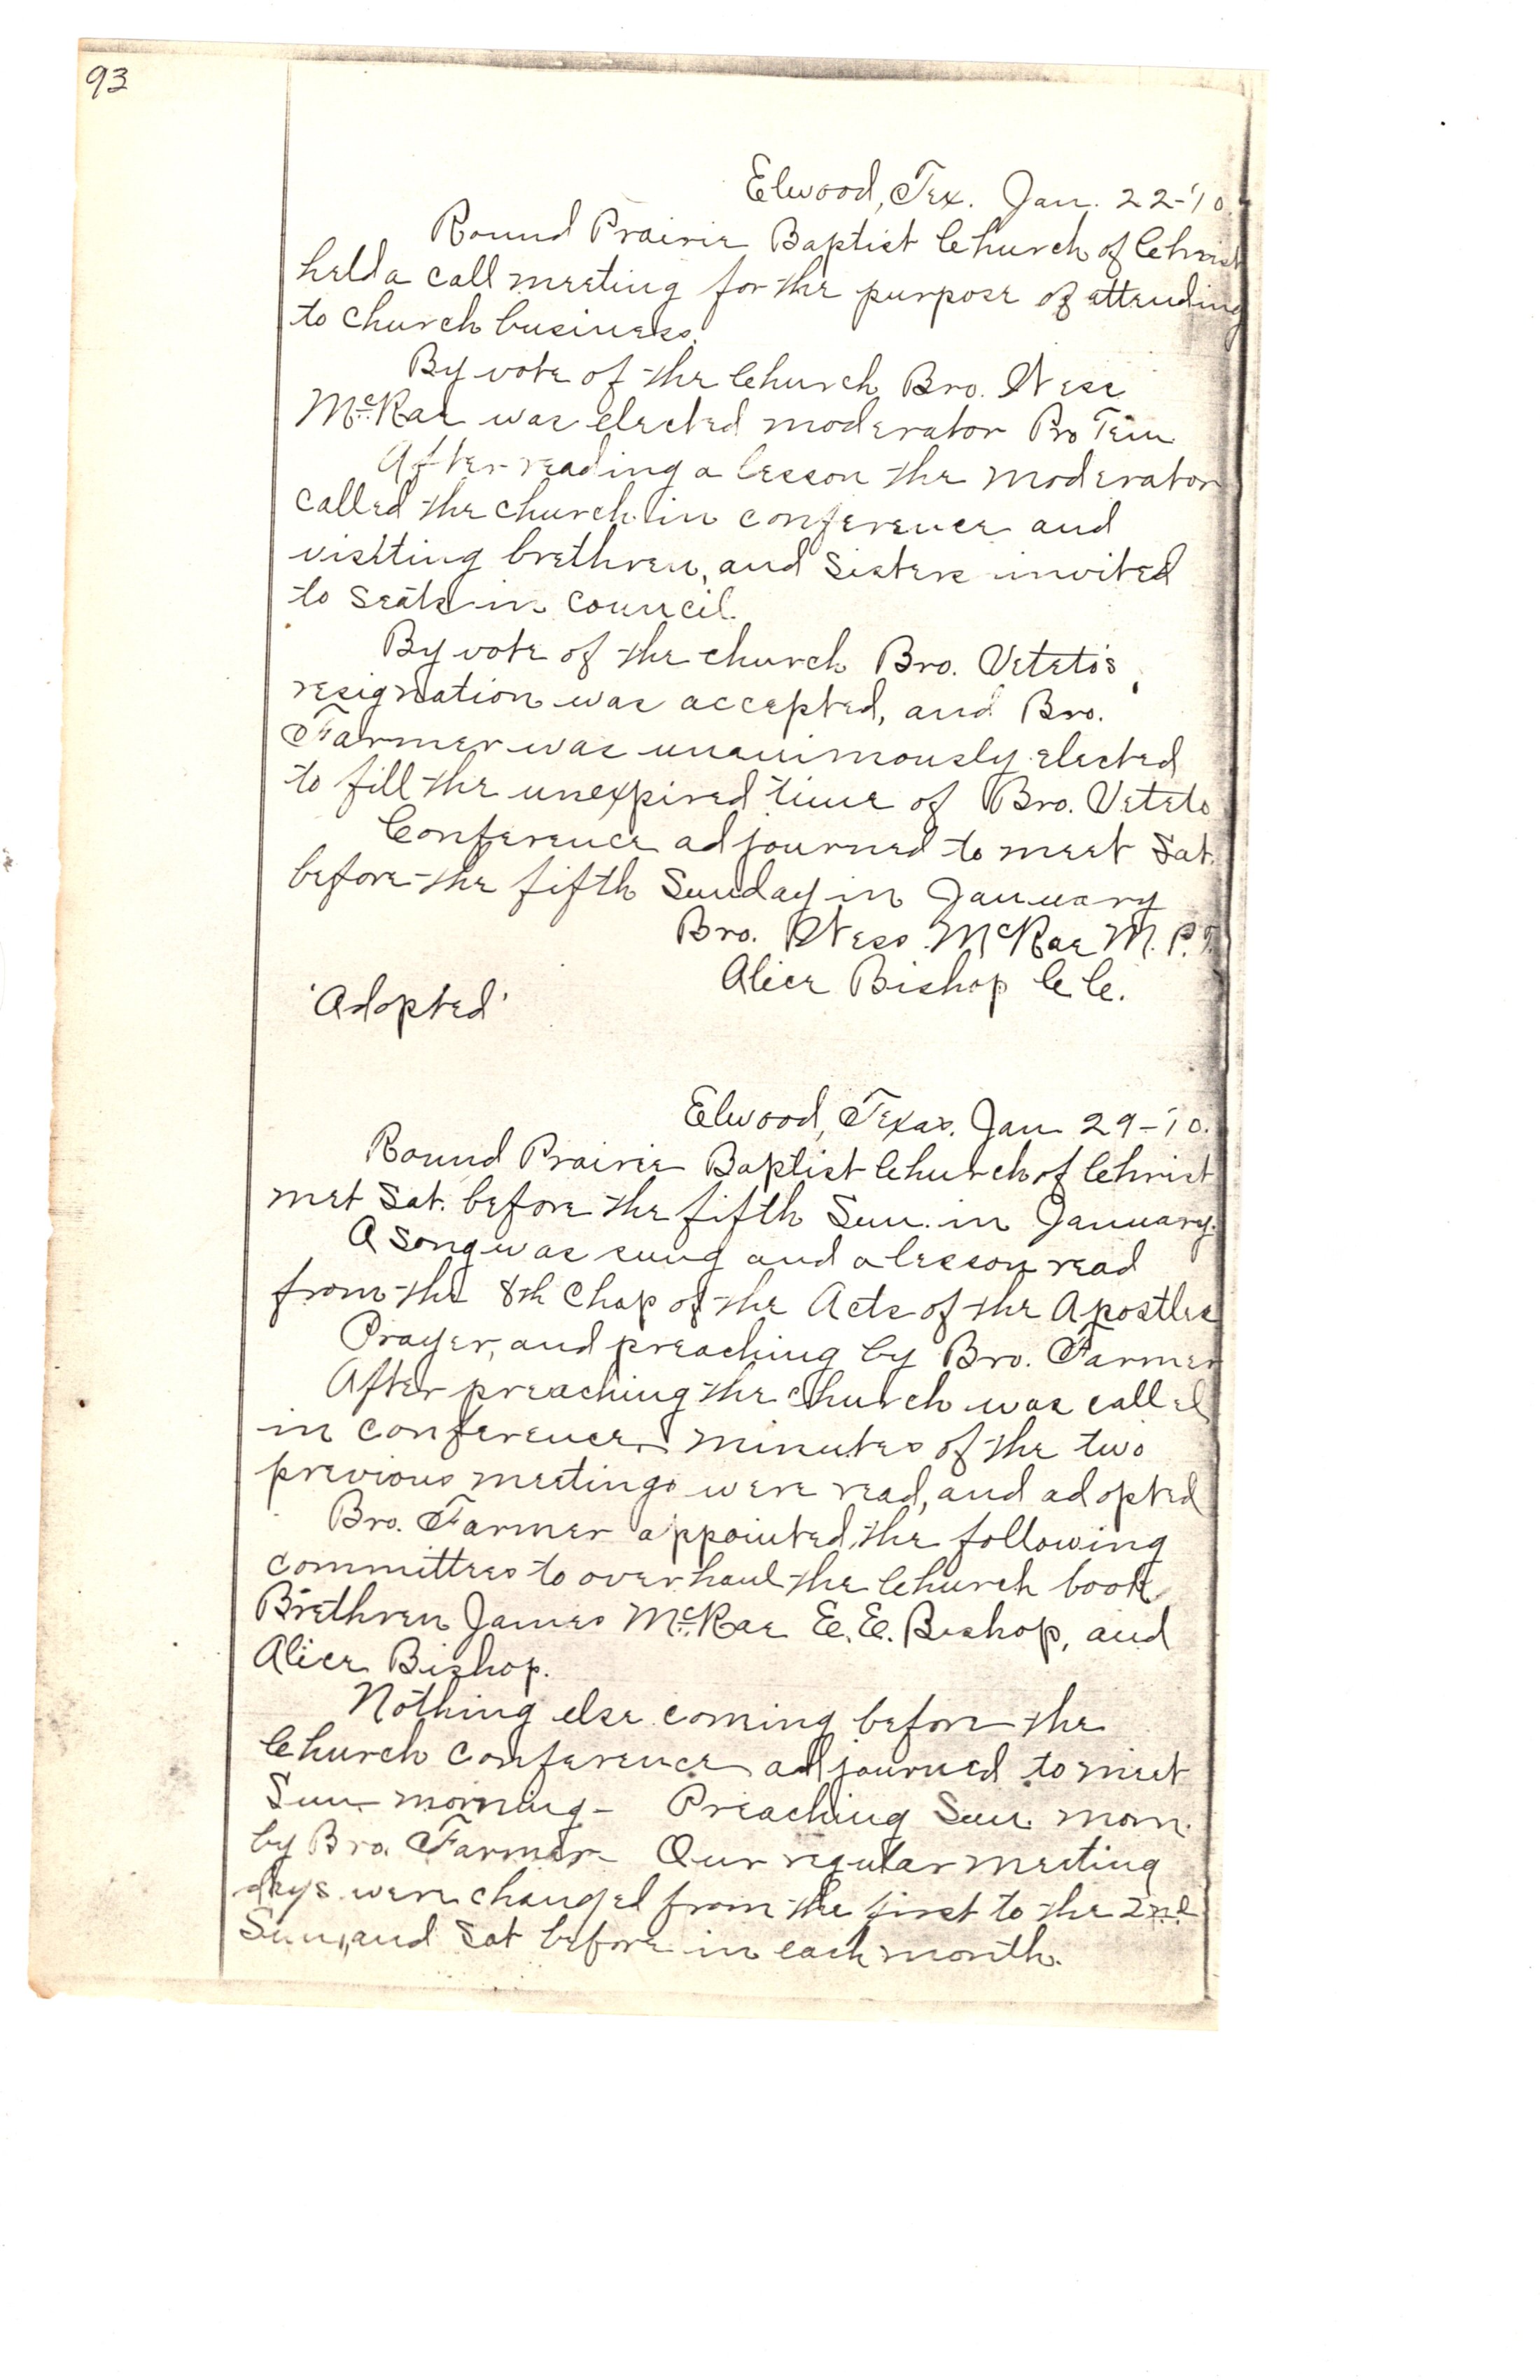 93
Elwood, Tex. Jan. 22-'10.
Round Prairie Baptist Church of Christ
held a call meeting for the purpose of attending
to church business.
By vote of the Church, Bro. Wess
McRae was elected moderator Pro Tem
After reading a lesson the moderator
called the church in conference and
visiting brethren, and sisters invited
to seats in council.
By vote of the church Bro. Veteto's
resignation was accepted, and Bro.
Farmer was unanimously elected
to fill the unexpired time of Bro. Veteto
Conference adjourned to meet Sat.
before the fifth Sunday in January
Bro. Wess McRae M. P. T.
Alice Bishop C C.
'Adopted'
Elwood, Texas. Jan 29-'10.
Round Prairie Baptist Church of Christ
met Sat. before the fifth Sun. in January.
A song was sung and a lesson read
from the 8th Chap of the Acts of the Apostles
Prayer, and preaching by Bro. Farmer
After preaching the church was called
in conference minutes of the two
previous meetings were read, and adopted
Bro. Farmer appointed the following
committees to overhaul the Church book,
Brethren James McRae E. E. Bishop, and
Alice Bishop.
Nothing else coming before the
Church conference adjourned to meet
Sun morning - Preaching Sun. morn.
by Bro. Farmer - Our regular meeting
days were changed from the first to the 2nd
Sun, and Sat before in each month.